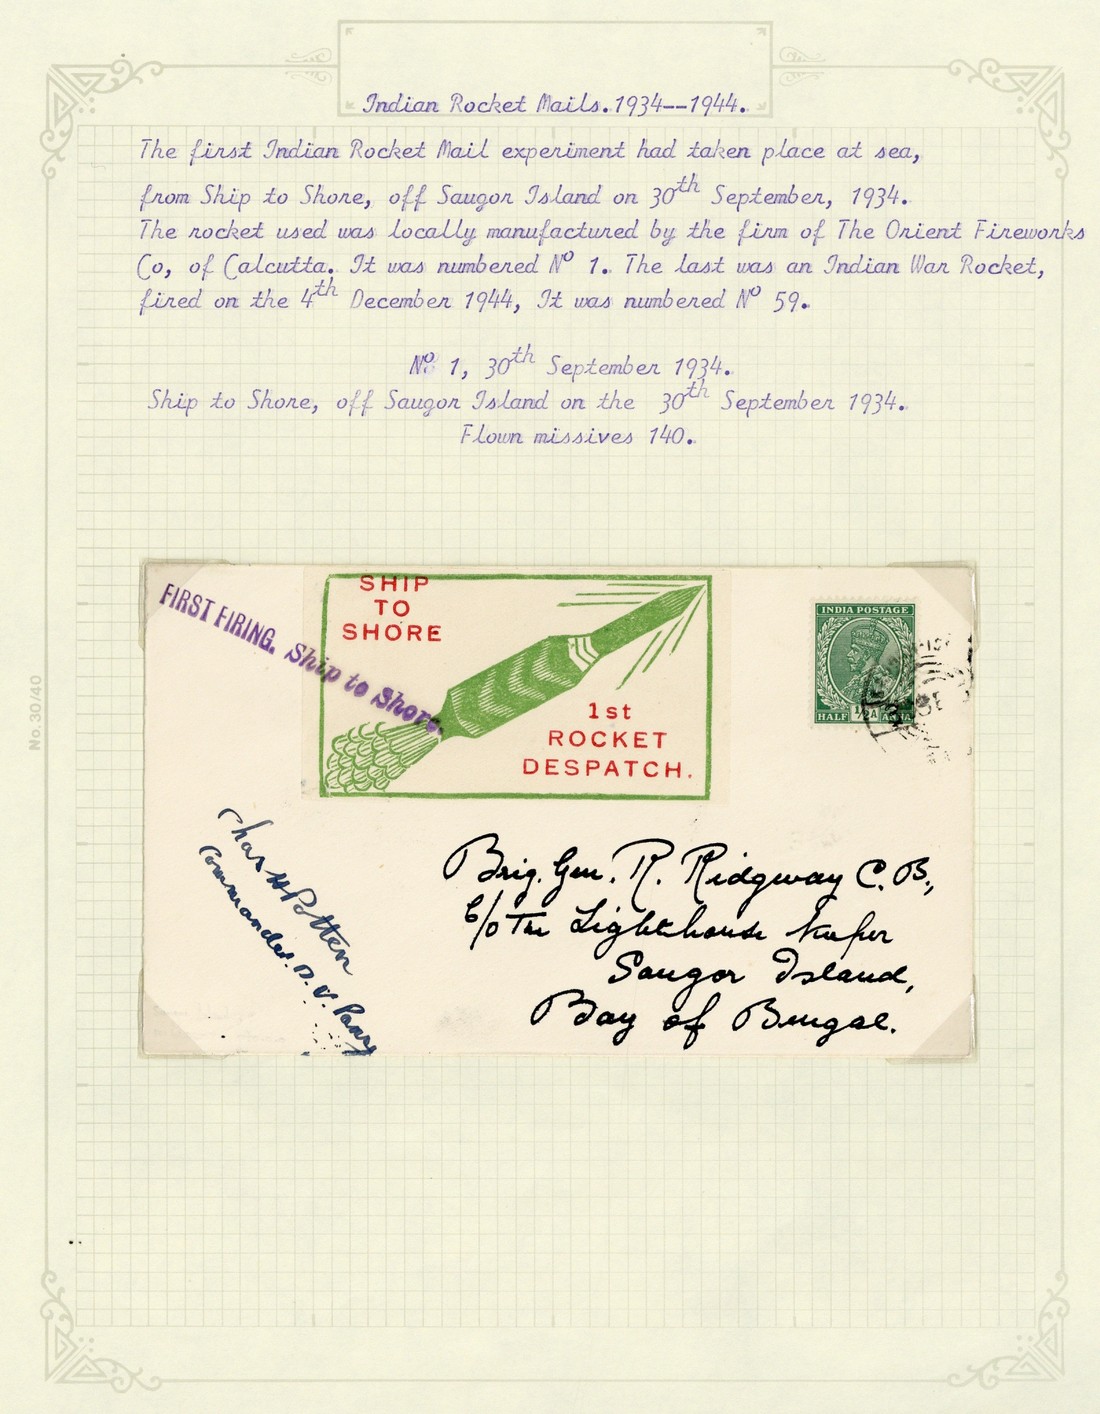 Indian Rocket Mails. 1934--1944.
The first Indian Rocket Mail experiment had taken place at sea,
from Ship to Shore, off Saugor Island on 30th September, 1934.
The rocket used was locally manufactured by the firm of The Orient Fireworks
Co, of Calcutta. It was numbered No 1. The last was an Indian War Rocket,
fired on the 4th December 1944, It was numbered No 59.
No 1, 30th September 1934.
Ship to Shore, off Saugor Island on the 30th September 1934.
Flown missives 140.
FIRST FIRING. Ship to Shore.
SHIP
TO
SHORE
1st
ROCKET
DESPATCH.
INDIA POSTAGE
HALF ½A ANNA
Chas H Potten
Commander. D. V.
Brig. Gen. R. Ridgway C.B.,
c/o The Lighthouse Keeper
Saugor Island,
Bay of Bengal.
No. 30/40